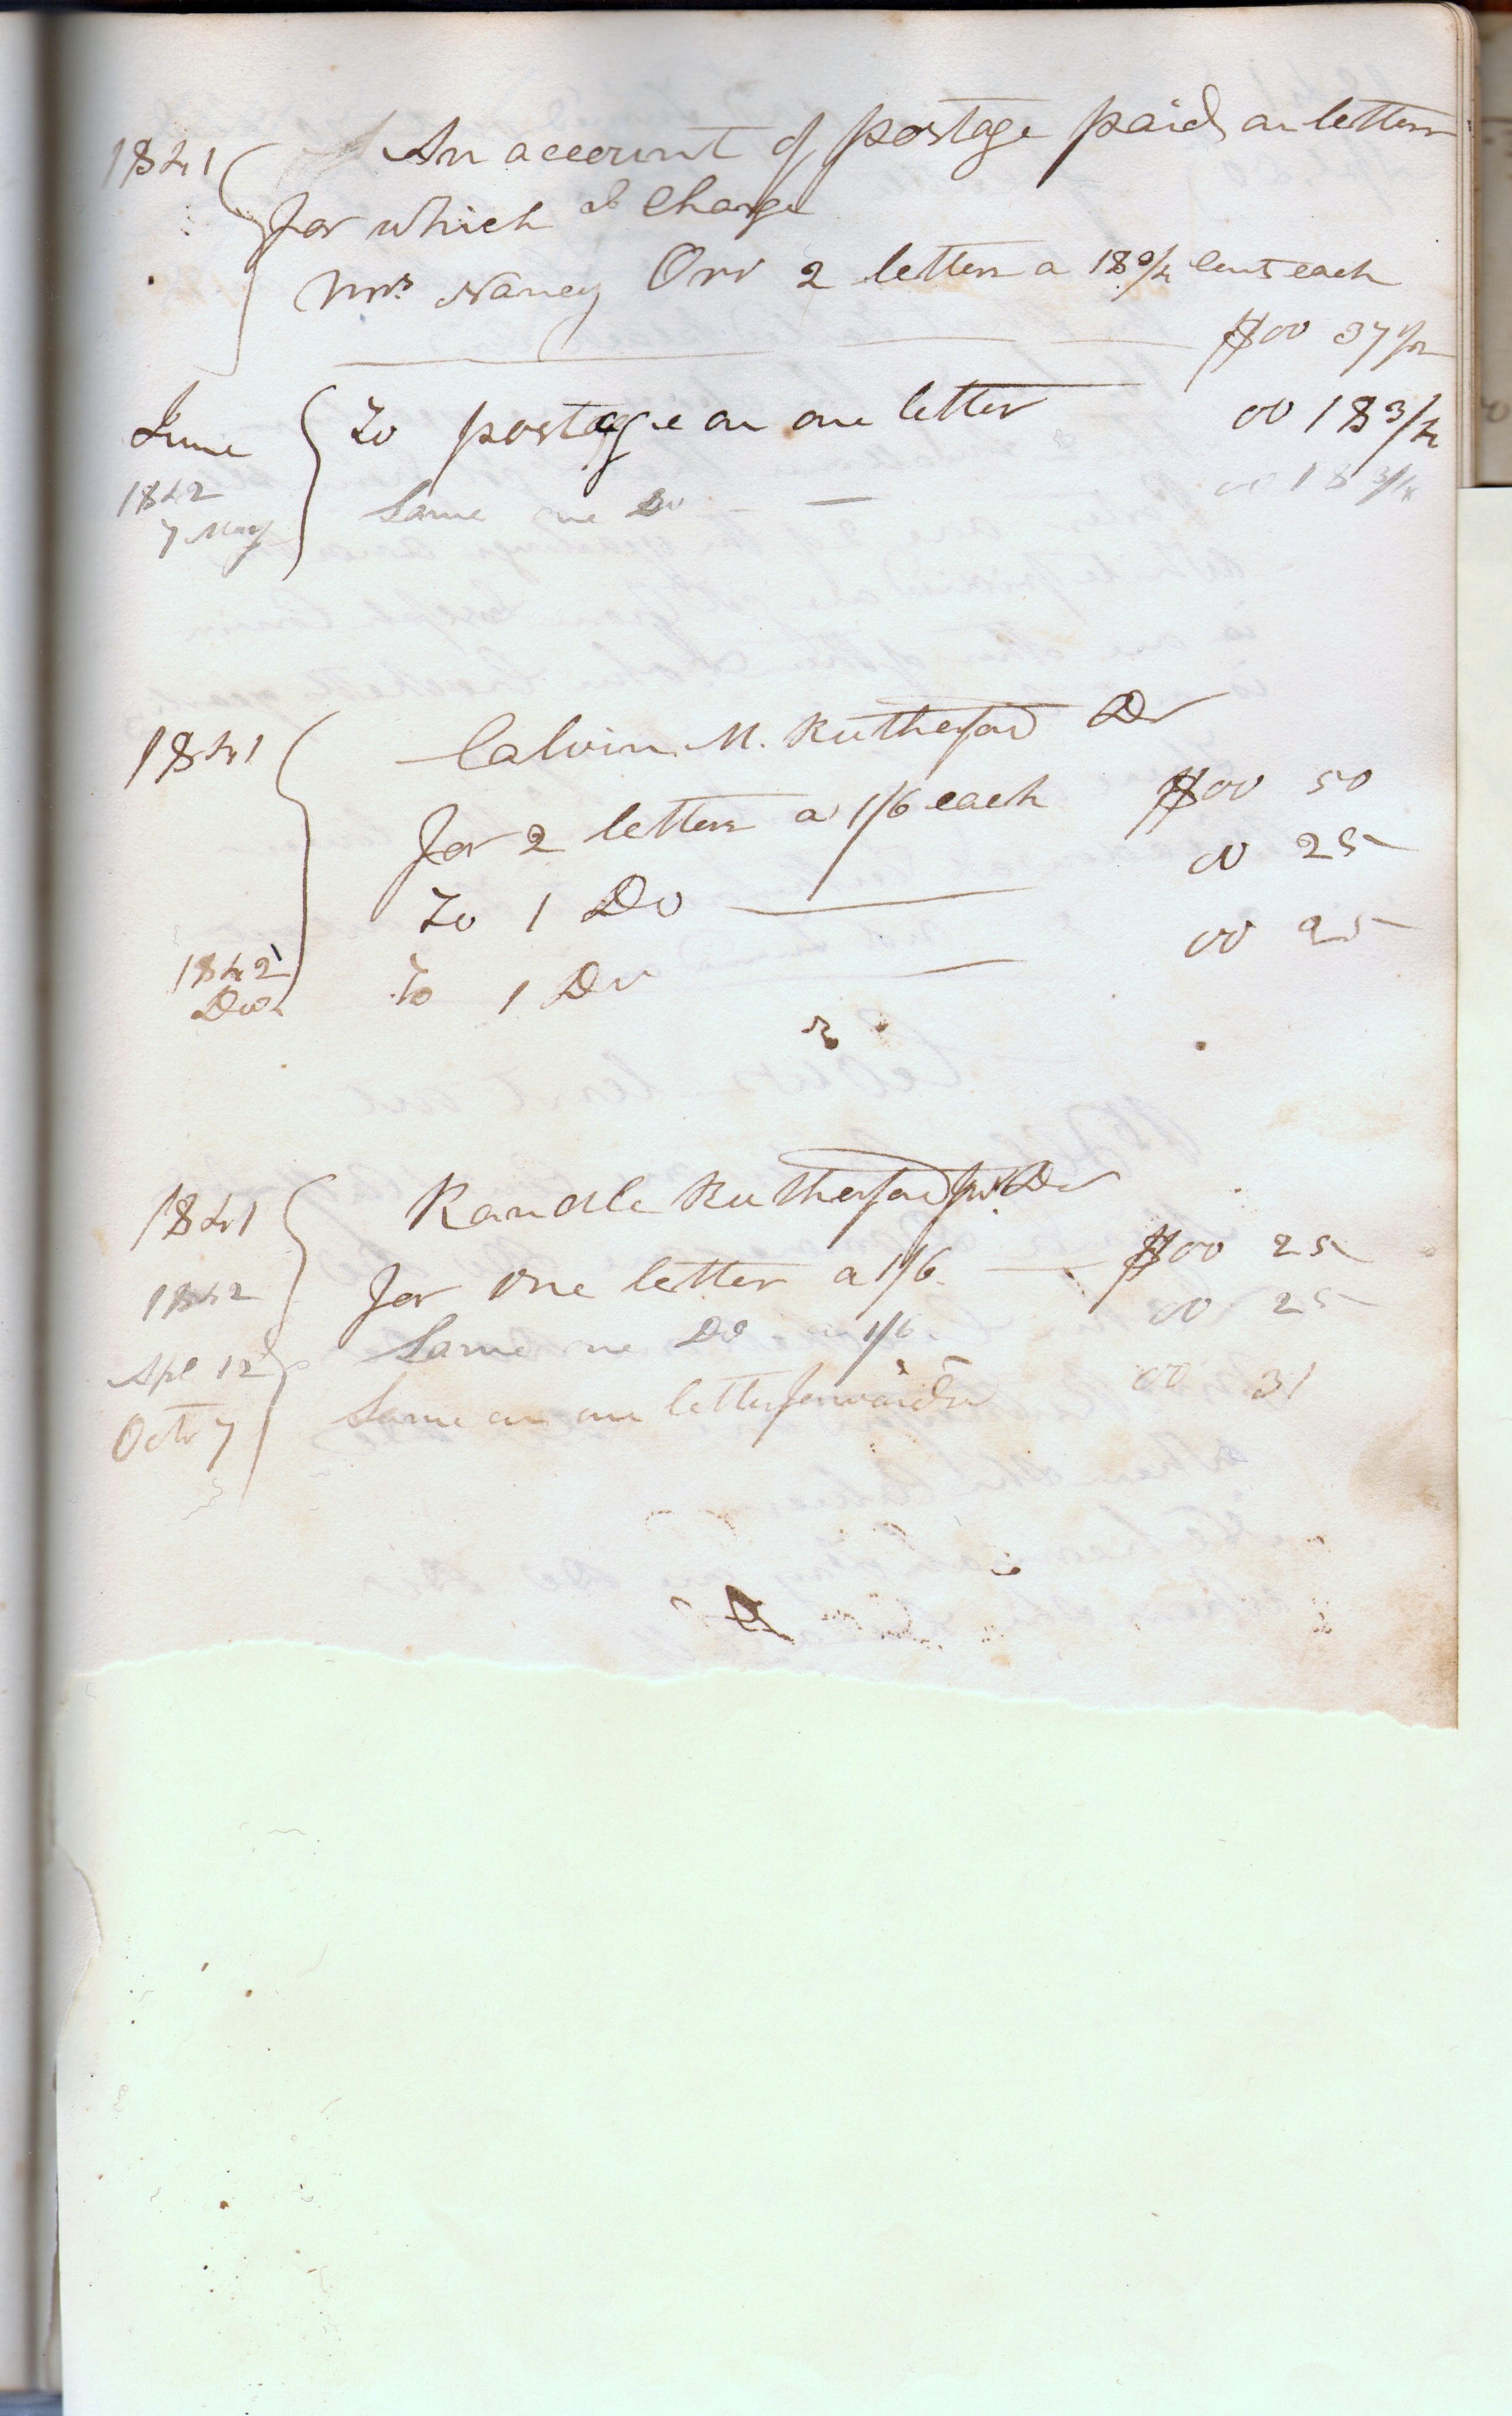 1841 An account of postage paid on letters
for which I Charge
Mrs Nancy Orr 2 letters a 18 3/4 cents each
$00 37 1/2
June To postage on one letter 00 18 3/4
1842
7 May Same one Do 00 18 3/4
1841 Calvin M. Rutherford Dr
for 2 letters a 1/6 each $00 50
To 1 Do 00 25
1842 To 1 Do 00 25
1841 Randle Rutherford jnr Dr
for one letter a 1/6 $00 25
1842
Apl 12 Same one Do a 1/6 00 25
Octr 7 Same on one letter forwarded 00 31